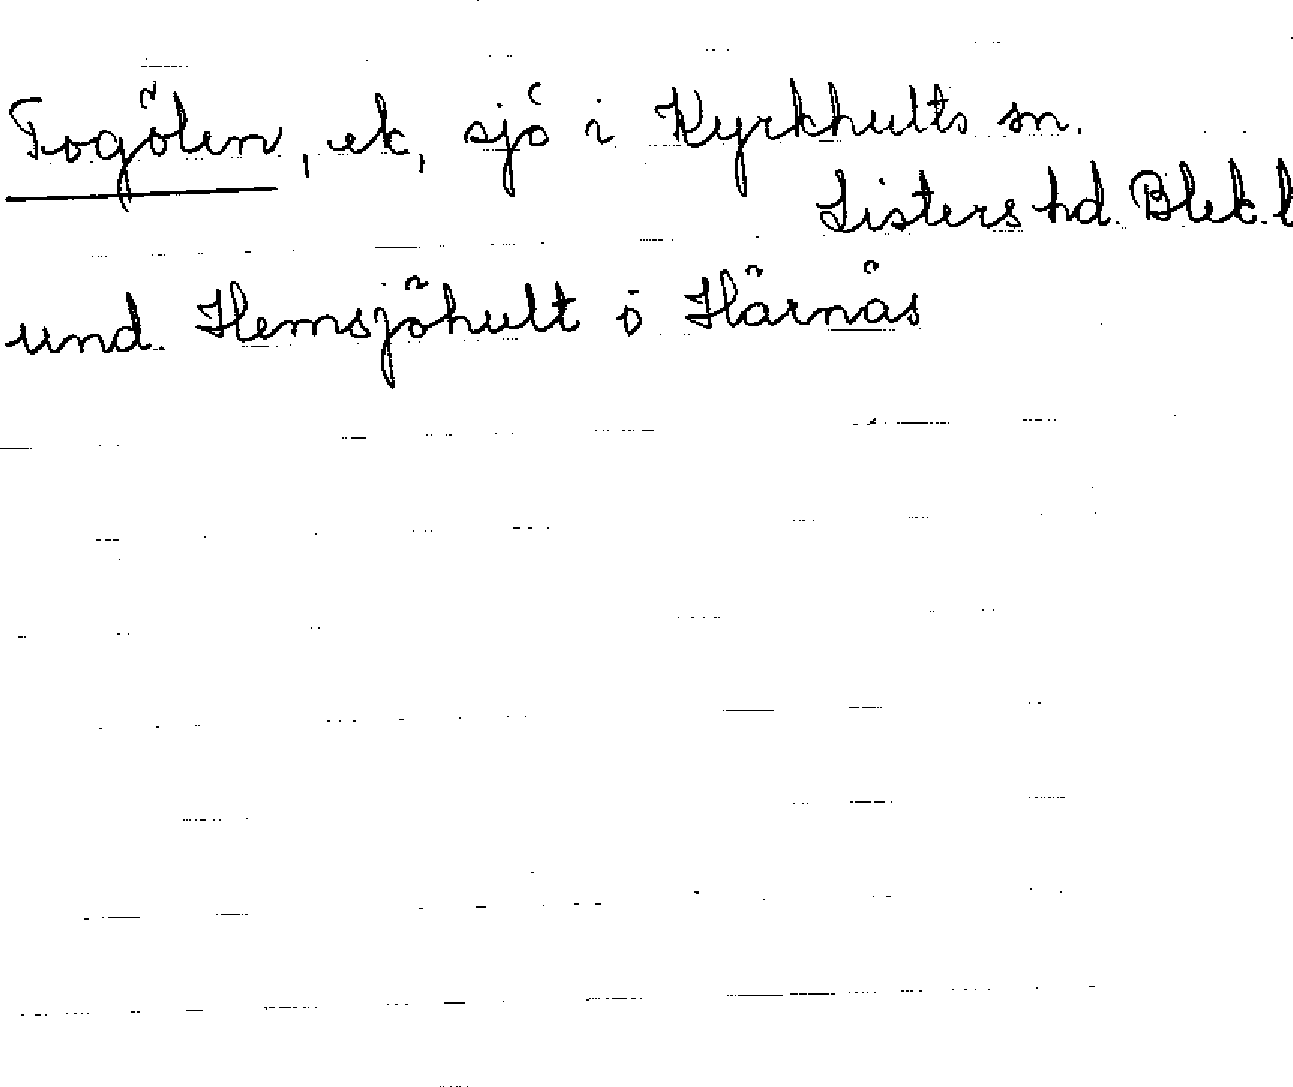 Togölen, ek, sjö i Kyrkhults sn.
Listers hd. Blek. l
und. Hemsjöhult ö Härnäs